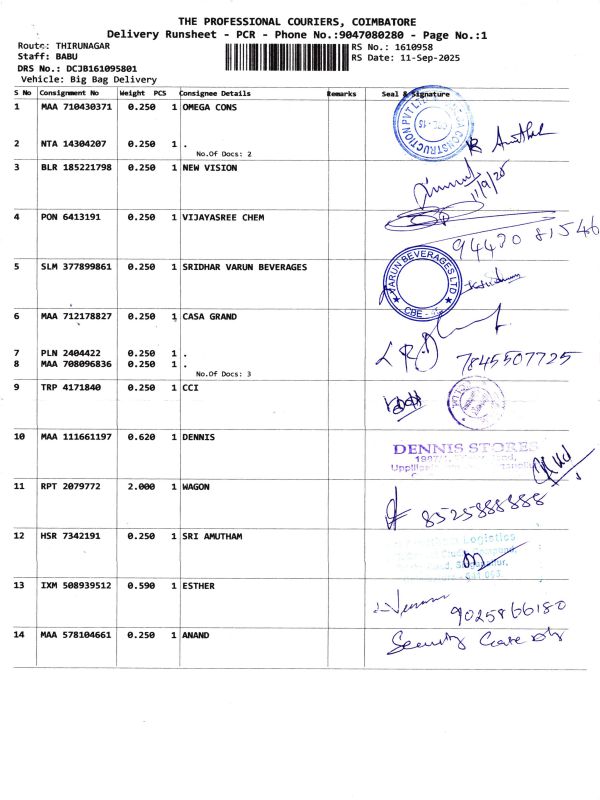 THE PROFESSIONAL COURIERS, COIMBATORE
Delivery Runsheet - PCR - Phone No.:9047080280 - Page No.:1
Route: THIRUNAGAR RS No.: 1610958
Staff: BABU RS Date: 11-Sep-2025
DRS No.: DCJB161095801
Vehicle: Big Bag Delivery
S No Consignment No Weight PCS Consignee Details Remarks Seal & Signature
1 MAA 710430371 0.250 1 OMEGA CONS
2 NTA 14304207 0.250 1 .
No.Of Docs: 2
3 BLR 185221798 0.250 1 NEW VISION
11/9/25
4 PON 6413191 0.250 1 VIJAYASREE CHEM
94420 81546
5 SLM 377899861 0.250 1 SRIDHAR VARUN BEVERAGES
VARUN BEVERAGES LTD
CBE
6 MAA 712178827 0.250 1 CASA GRAND
7 PLN 2404422 0.250 1 .
8 MAA 708096836 0.250 1 .
7845507725
No.Of Docs: 3
9 TRP 4171840 0.250 1 CCI
10 MAA 111661197 0.620 1 DENNIS
DENNIS STORES
11 RPT 2079772 2.000 1 WAGON
8525888888
12 HSR 7342191 0.250 1 SRI AMUTHAM
Logistics
13 IXM 508939512 0.590 1 ESTHER
9025866180
14 MAA 578104661 0.250 1 ANAND
Security Gate